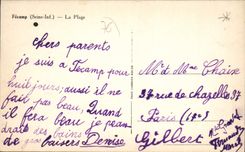 Fécamp (Seine-Inf.) — La Plage
Chers parents
je suis à Fécamp pour
huit jours, aussi il ne
fait pas beau, Quand
il fera beau je pren
drais des bains
gros baisers Denise
Mr et Mme Chaix
37 rue de chazelles 37
Paris (17e)
Gilbert